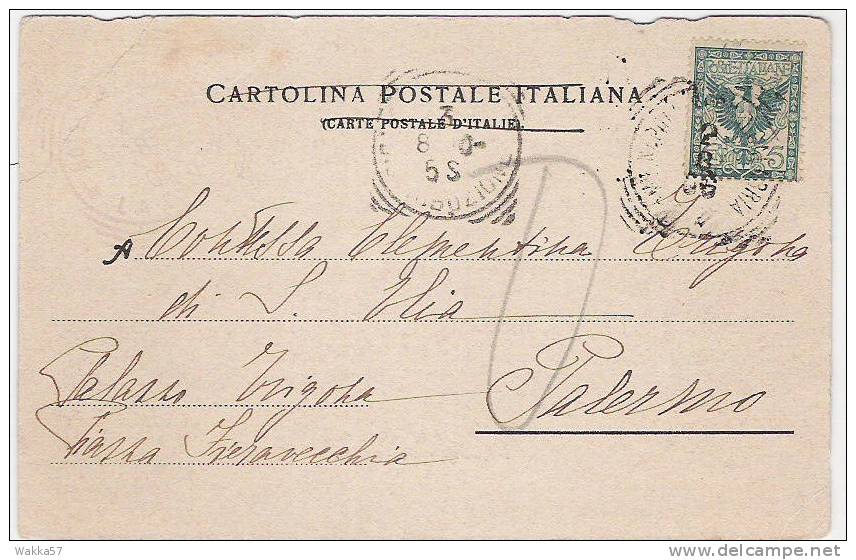 CARTOLINA POSTALE ITALIANA
(CARTE POSTALE D'ITALIE)
POSTE ITALIANE
5
3
8
5 S
A Contessa Clementina Trigona
di S. Elia
Palermo
Palazzo Trigona
Piazza Fieravecchia
Wakka57
delcampe.net